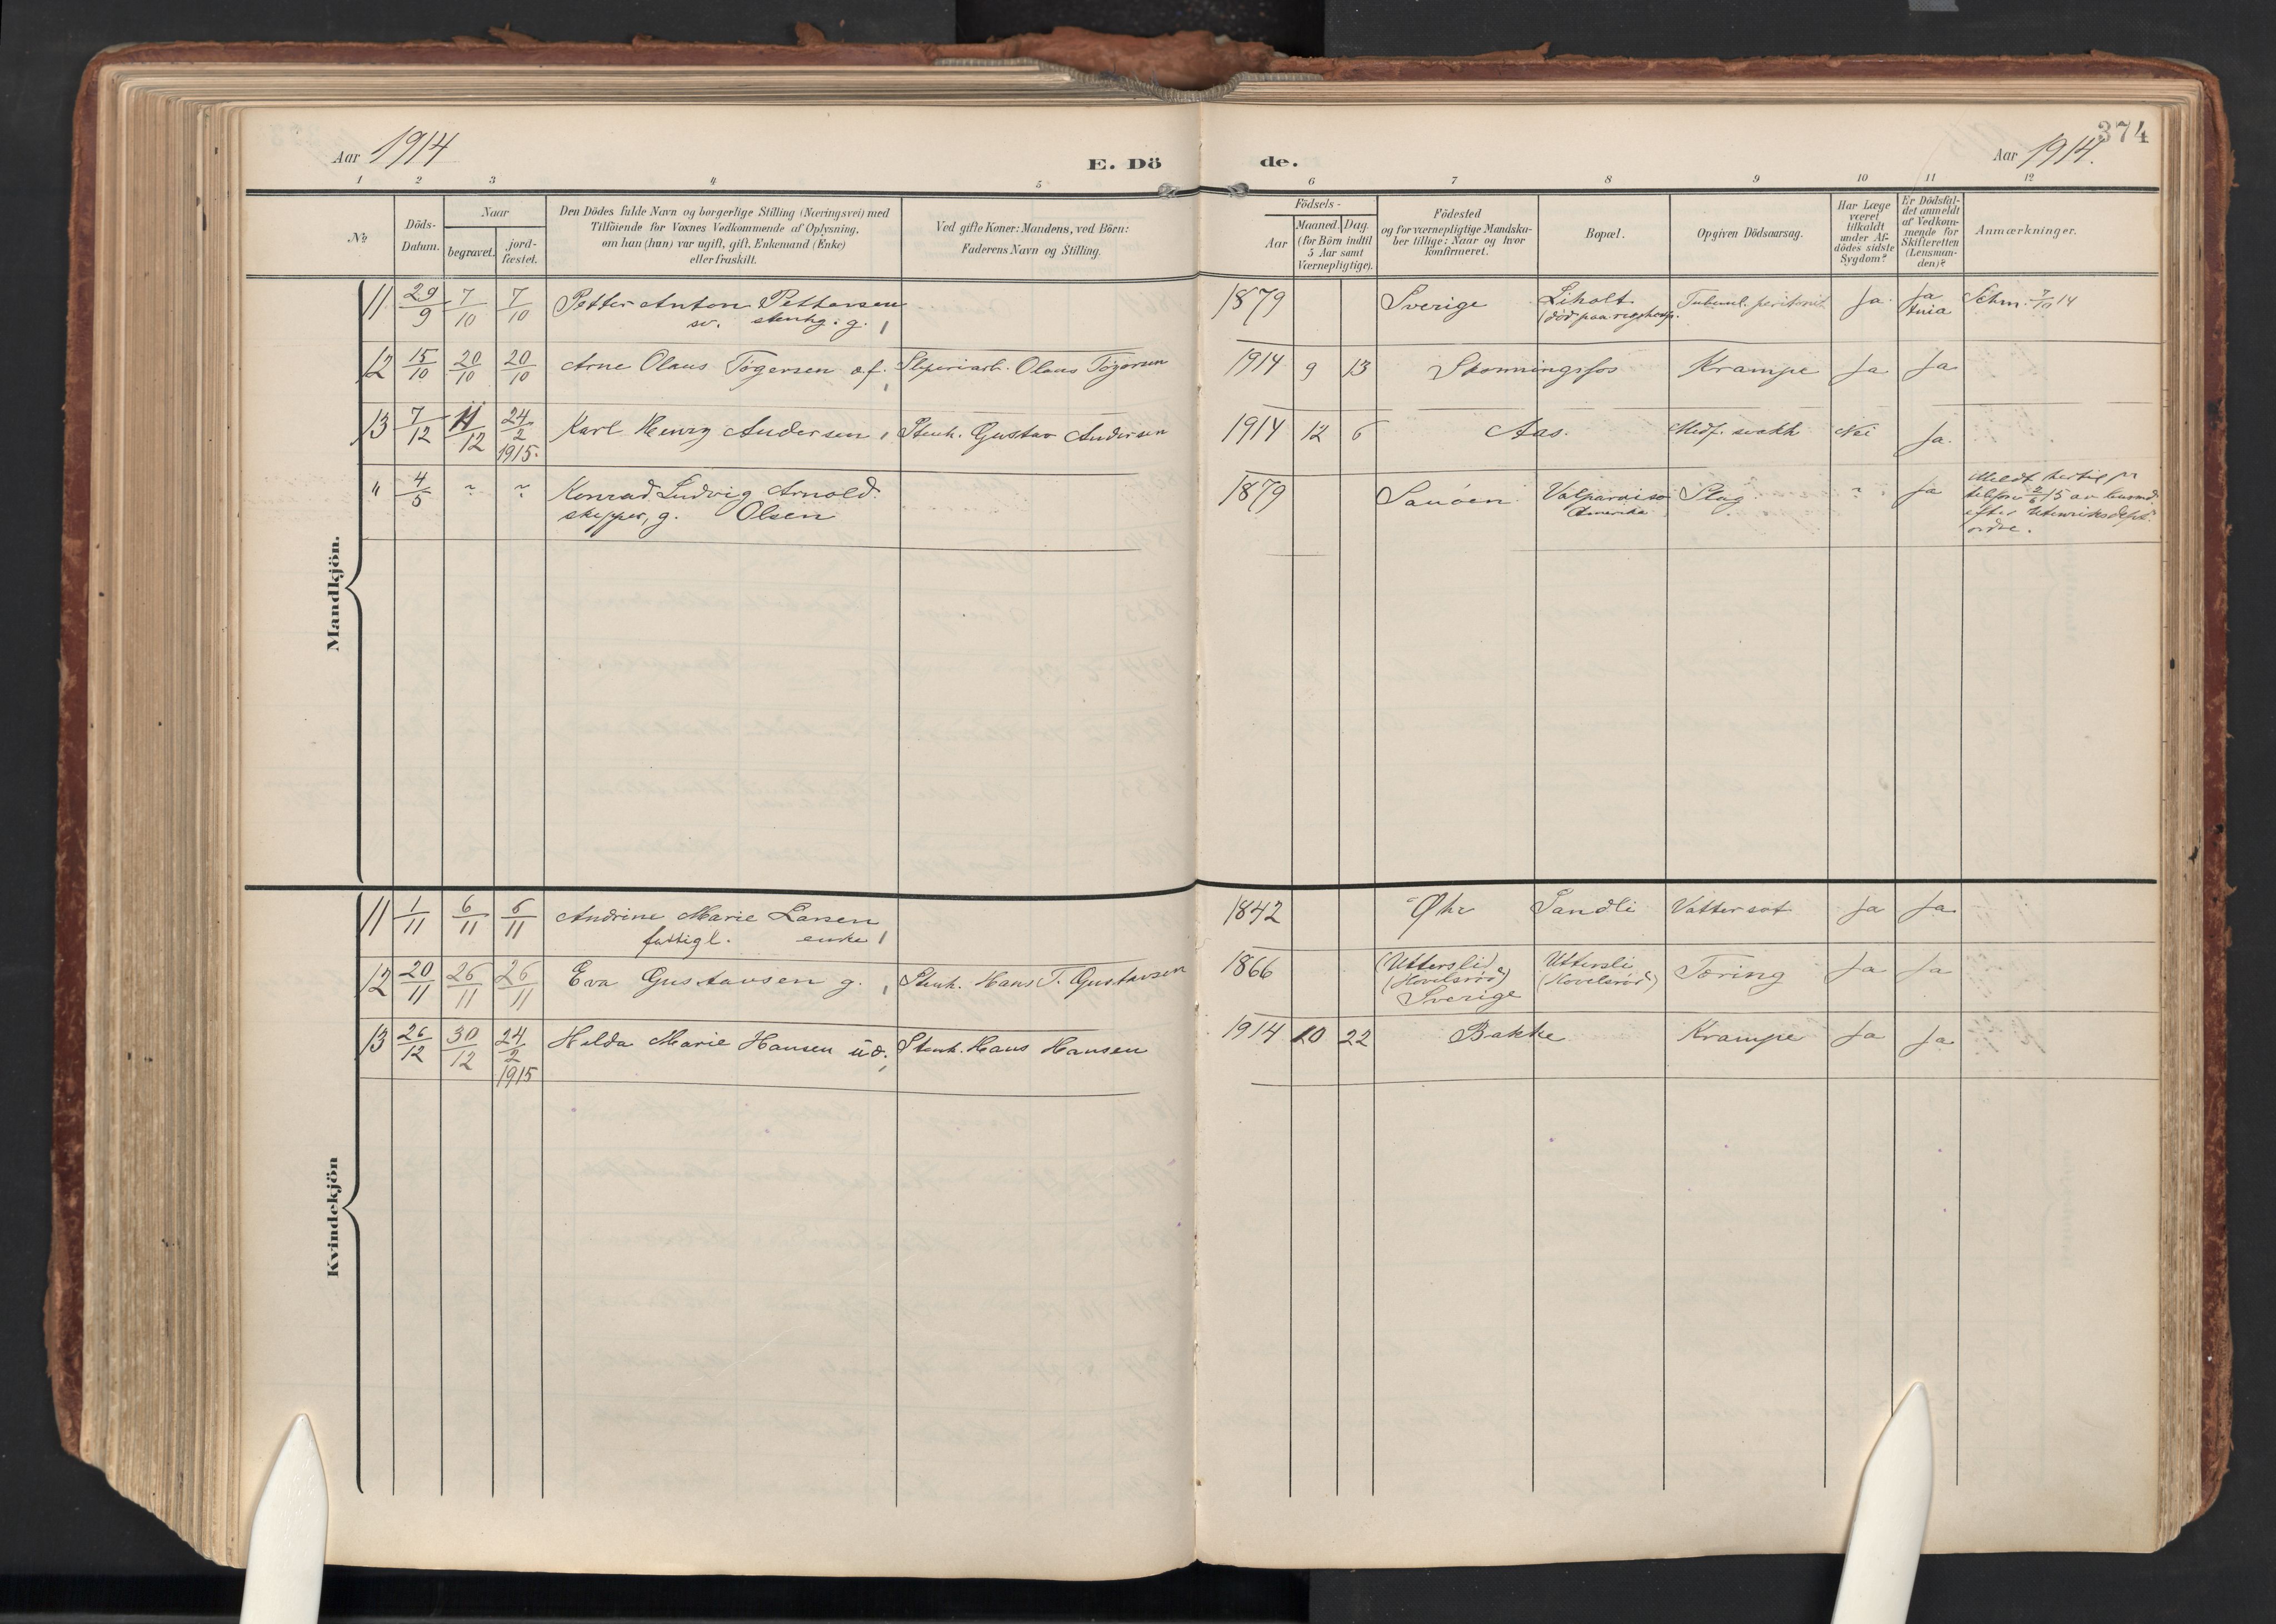 374
Aar 1914
E. Dö de.
Aar 1914.
1 2 3 4 5 6 7 8 9 10 11 12
No
Döds-Datum.
Naar
begravet.
jord-fæstet.
Den Dödes fulde Navn og borgerlige Stilling (Næringsvei) med
Tilföiende for Voxnes Vedkommende af Oplysning,
om han (hun) var ugift, gift, Enkemand (Enke)
eller fraskilt.
Ved gifte Koner: Mandens, ved Börn:
Faderens Navn og Stilling.
Födsels-
Aar
Maaned. Dag.
(for Börn indtil
5 Aar samt
Værnepligtige).
Födested
og for værnepligtige Mandska-
ber tillige: Naar og hvor
konfirmeret.
Bopæl.
Opgiven Dödsaarsag.
Har Læge
været
tilkaldt
under Af-
dödes sidste
Sygdom?
Er Dödsfal-
det anmeldt
af Vedkom-
mende for
Skifteretten
(Lensman-
den)?
Anmærkninger.
Mandkjön.
11 29/9 7/10 7/10 Petter Anton Pettersen 1879 Sverige Liholt Tuberkl. peritonit Ja Ja
sv. stenhg. g. (död paa rigshosp. 7/10 14
12 15/10 20/10 20/10 Arne Olaus Törgersen o.f. Sliperiarb. Olaus Törgersen 1914 9 13 Skonningsfos Krampe Ja Ja
13 7/12 11/12 24/2 1915. Karl Henry Andersen, Stenh. Gustav Andersen 1914 12 6 Aas. Medf. svakh. Nei Ja.
" 4/5 ~ ~ Konrad Ludvig Arnold 1879 Sanöen Valparaiso Slag ~ Ja Meldt hertil pr
skipper, g. Olsen Amerika telefon 2/6 15 av lensmd.
efter Utenriksdept.
ordre.
Kvindekjön
11 1/11 6/11 6/11 Andrine Marie Larsen 1842 Øhr Sandli Vattersot Ja Ja
fattigl. enke
12 20/11 26/11 26/11 Eva Gustavsen g., Stenh. Hans T. Gustavsen 1866 (Utterslid) Uttersli Tæring Ja Ja
(Hovelsröd) (Hovelsröd)
Sverige
13 26/12 30/12 24/2 1915 Helda Marie Hansen u.d., Stenh. Hans Hansen 1914 10 22 Bakke Krampe Ja Ja